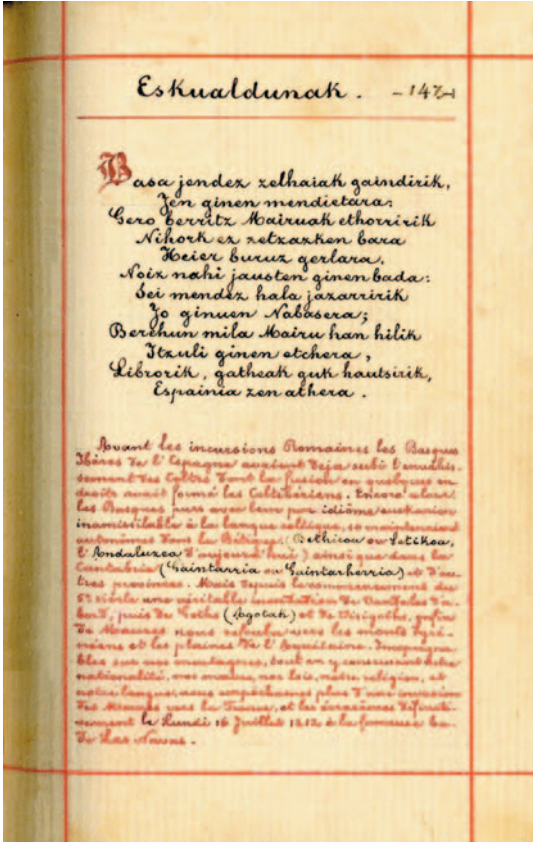 Eskualdunak. - 147 -
Basa jendez zelhaiak gaindirik,
Jen ginen mendietara:
Gero berritz Mairuak ethorririk
Nihork ez zetzazken bara
Heier buruz gerlara.
Noiz nahi jausten ginen bada:
Sei mendez hala jazarririk
Jo ginuen Nabasera;
Berehun mila Mairu han hilik
Itzuli ginen etchera,
Librorik, gatheak guk hautsirik,
Espainia zen athera.
Avant les incursions Romaines les Basques
Ibères de l'Espagne avaient déja subi l'envahis-
sement des Celtes dont la fusion en quelques en-
droits avait formé les Celtibériens. Encore alors
les Basques purs avec leur pur idiôme euskarien
inassimilable à la langue celtique, se maintenaient
autonômes dans la Bétique (Bethicoa ou Setikoa,
l'Andaluzea d'aujourd'hui) ainsi que dans la
Cantabria (Gaintarria ou Gaintarherria) et d'au-
tres provinces. Mais depuis le commencement du
5e siècle une véritable inondation de Vandales d'a-
bord, puis de Goths (Agotak) et de Visigoths, enfin
de Maures nous refoula vers les monts Pyré-
néens et les plaines de l'Aquitaine. Inexpugna-
bles sur nos montagnes, tout en y conservant notre
nationalité, nos mœurs, nos lois, notre religion, et
notre langue, nous empêchames plus d'une invasion
des Maures vers la France, et les écrasâmes définiti-
vement le Lundi 16 Juillet 1212 à la fameuse ba-
de Las Navas.